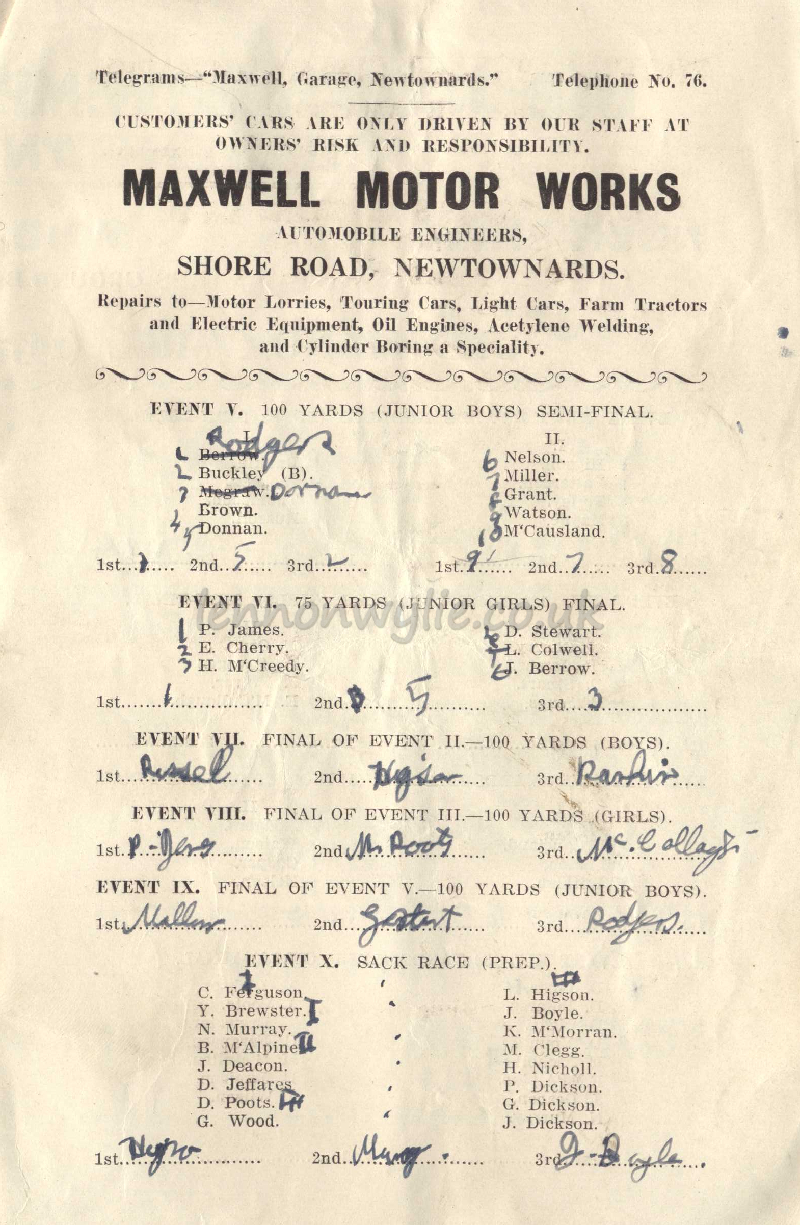 Telegrams—"Maxwell, Garage, Newtownards." Telephone No. 76.
CUSTOMERS' CARS ARE ONLY DRIVEN BY OUR STAFF AT
OWNERS' RISK AND RESPONSIBILITY.
MAXWELL MOTOR WORKS
AUTOMOBILE ENGINEERS,
SHORE ROAD, NEWTOWNARDS.
Repairs to—Motor Lorries, Touring Cars, Light Cars, Farm Tractors
and Electric Equipment, Oil Engines, Acetylene Welding,
and Cylinder Boring a Speciality.
EVENT V. 100 YARDS (JUNIOR BOYS) SEMI-FINAL.
I. Rodgers
Berrow.
2 Buckley (B).
3 Megraw. Dornan
Brown.
Donnan.
II.
6 Nelson.
7 Miller.
Grant.
9 Watson.
10 M'Causland.
1st....... 2nd..5..... 3rd..2.......
1st..9....... 2nd..7..... 3rd.8......
EVENT VI. 75 YARDS (JUNIOR GIRLS) FINAL.
lennonwylie.co.uk
1 P. James.
2 E. Cherry.
3 H. M'Creedy.
D. Stewart.
L. Colwell.
6 J. Berrow.
1st.......1............... 2nd..........5.......... 3rd....3..................
EVENT VII. FINAL OF EVENT II.—100 YARDS (BOYS).
1st.................. 2nd.................. 3rd...Rankin......
EVENT VIII. FINAL OF EVENT III.—100 YARDS (GIRLS).
1st.................. 2nd..M. Poots........ 3rd..................
EVENT IX. FINAL OF EVENT V.—100 YARDS (JUNIOR BOYS).
1st.................. 2nd.................. 3rd....Rodgers.....
EVENT X. SACK RACE (PREP.).
C. Ferguson. I
Y. Brewster. I
N. Murray.
B. M'Alpine II
J. Deacon.
D. Jeffares
D. Poots. III
G. Wood.
L. Higson. III
J. Boyle.
K. M'Morran.
M. Clegg.
H. Nicholl.
P. Dickson.
G. Dickson.
J. Dickson.
1st.................. 2nd.................. 3rd.J. Boyle....